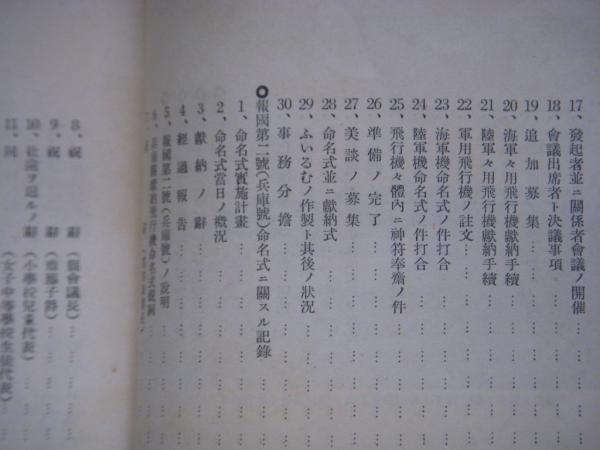 17、發起者並ニ關係者會議ノ開催……
18、會議出席者ト決議事項……
19、追加募集……
20、海軍々用飛行機獻納手續……
21、陸軍々用飛行機獻納手續……
22、軍用飛行機ノ註文……
23、海軍機命名式ノ件打合……
24、陸軍機命名式ノ件打合……
25、飛行機々體內ニ神符奉齋ノ件……
26、準備ノ完了……
27、美談ノ募集……
28、命名式並ニ獻納式……
29、ふいるむノ作製ト其後ノ狀況……
30、事務分擔……
○報國第二號(兵庫號)命名式ニ關スル記錄
1、命名式實施計畫……
2、命名式當日ノ槪況……
3、獻納ノ辭……
4、經過報告……
5、報國第二號(兵庫號)ノ說明……
6、兵庫縣獻納飛行機命名式祝詞
7、
8、祝辭(縣會議長)……
9、祝辭
10、祝辭(小學校兒童代表)……
11、同(女子中等學校生徒代表)……